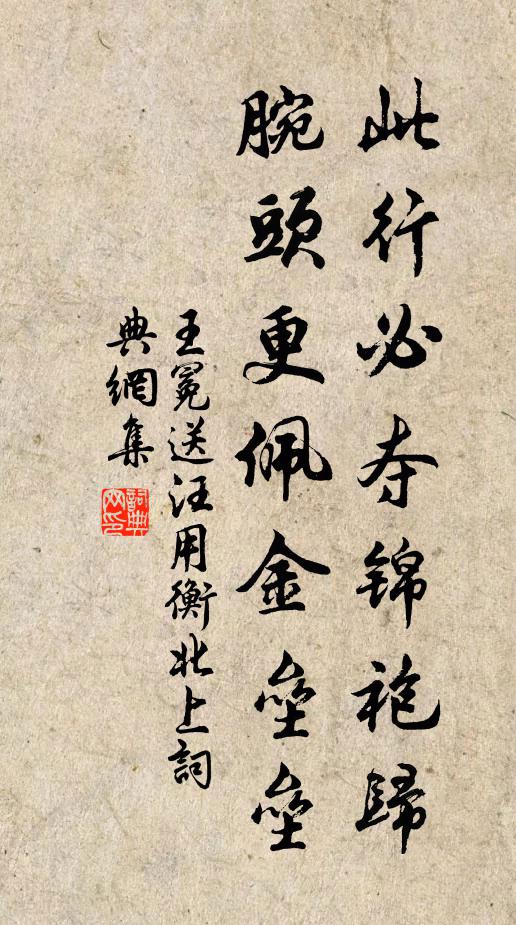 此行必夺锦袍歸
腕頭更佩金垒垒
王冕送汪用衡北上詞
典網集
詞典网印